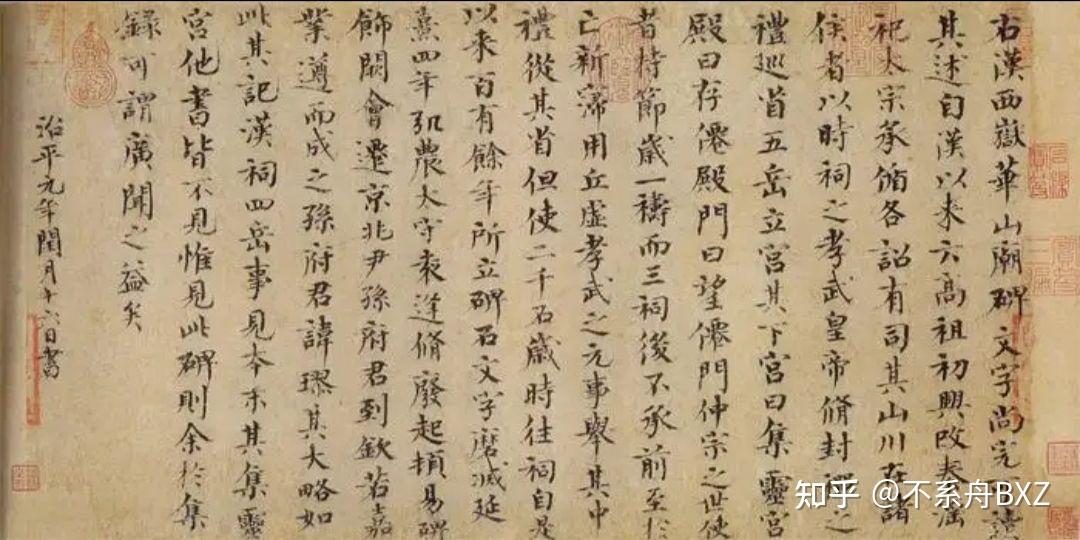 右漢西嶽華山廟碑文字尚完可讀
其述自漢以来云高祖初興改秦淫
祀太宗承循各詔有司其山川在諸
侯者以時祠之孝武皇帝脩封禪之
禮巡省五岳立宮其下宮曰集靈宮
殿曰存僊殿門曰望僊門仲宗之世使
者持節歲一禱而三祠後不承前至於
亡新寖用丘虛孝武之元事舉其中
禮從其省但使二千石歲時往祠自是
以来百有餘年所立碑石文字磨滅延
熹四年弘農太守袁逢脩廢起頓易碑
飾闕會遷京兆尹孫府君到欽若嘉
業遵而成之孫府君諱璆其大略如
此其記漢祠四岳事見本末其集靈
宮他書皆不見惟見此碑則余於集
錄可謂廣聞之益矣
治平元年閏月十六日書
知乎 @不系舟BXZ